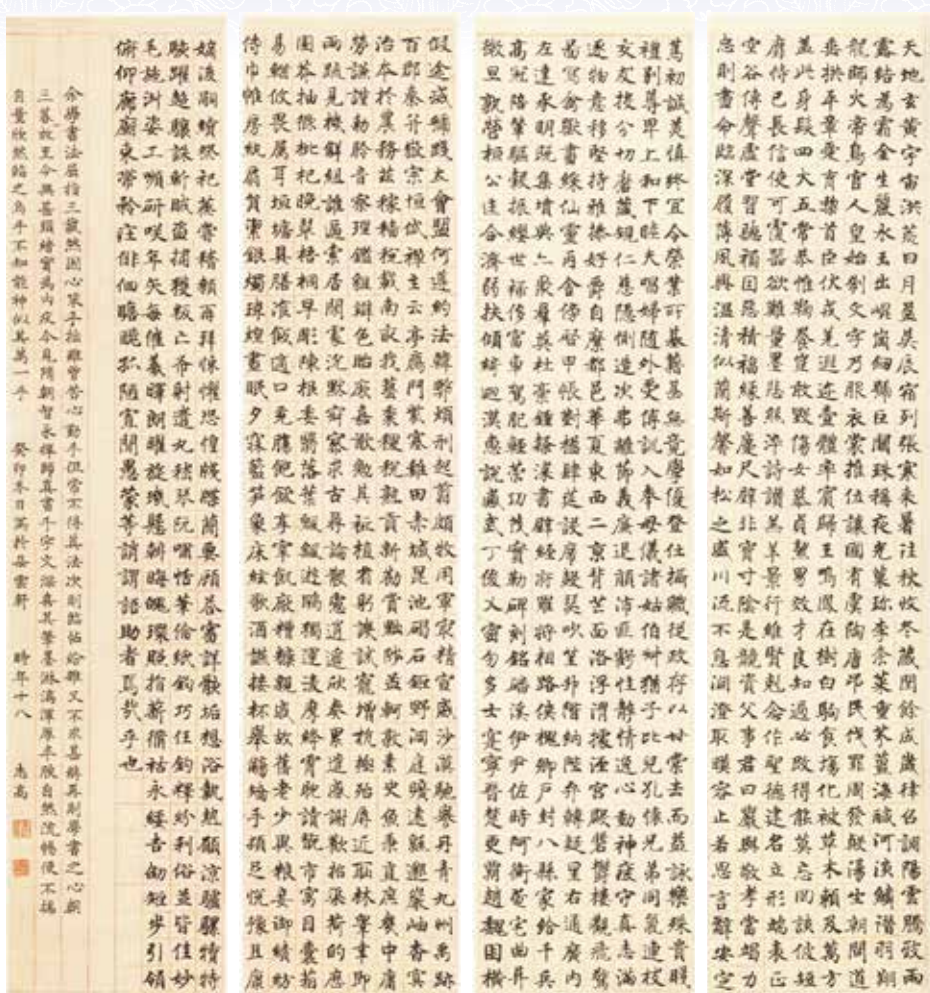 天地玄黃宇宙洪荒日月盈昃辰宿列張寒來暑往秋收冬藏閏餘成歲律呂調陽雲騰致雨
露結為霜金生麗水玉出崐崗劒號巨闕珠稱夜光菓珍李柰菜重芥薑海鹹河淡鱗潛羽翔
龍師火帝鳥官人皇始制文字乃服衣裳推位讓國有虞陶唐弔民伐罪周發殷湯坐朝問道
垂拱平章愛育黎首臣伏戎羌遐迩壹體率賓歸王鳴鳳在樹白駒食場化被草木賴及萬方
蓋此身髮四大五常恭惟鞠養豈敢毀傷女慕貞絜男效才良知過必改得能莫忘罔談彼短
靡恃己長信使可覆器欲難量墨悲絲淬詩讚羔羊景行維賢剋念作聖德建名立形端表正
空谷傳聲虛堂習聽禍因惡積福緣善慶尺璧非寶寸陰是競資父事君曰嚴與敬孝當竭力
忠則盡命臨深履薄夙興溫清似蘭斯馨如松之盛川流不息淵澄取暎容止若思言辭安定
篤初誠美慎終宜令榮業所基籍甚無竟學優登仕攝職從政存以甘棠去而益詠樂殊貴賤
禮別尊卑上和下睦夫唱婦隨外受傅訓入奉母儀諸姑伯叔猶子比兒孔懷兄弟同氣連枝
交友投分切磨箴規仁慈隱惻造次弗離節義廉退顛沛匪虧性靜情逸心動神疲守真志滿
逐物意移堅持雅操好爵自縻都邑華夏東西二京背芒面洛浮渭據涇宮殿盤鬱樓觀飛驚
啚寫禽獸畫綵仙靈丙舍傍啓甲帳對楹肆筵設席鼓瑟吹笙升階納陛弁轉疑星右通廣內
左達承明既集墳典亦聚群英杜稾鍾隸漆書壁經府羅將相路俠槐卿戶封八縣家給千兵
高冠陪輦驅轂振纓世祿侈富車駕肥輕策功茂實勒碑刻銘磻溪伊尹佐時阿衡奄宅曲阜
微旦孰營桓公匡合濟弱扶傾綺迴漢惠說感武丁俊乂密勿多士寔寧晉楚更霸趙魏困橫
假途滅虢踐土會盟何遵約法韓弊煩刑起翦頗牧用軍最精宣威沙漠馳譽丹青九州禹跡
百郡秦并嶽宗恒岱禪主云亭鴈門紫塞雞田赤城昆池碣石鉅野洞庭曠遠緜邈巖岫杳冥
治本於農務茲稼穡俶載南畝我藝黍稷稅熟貢新勸賞黜陟孟軻敦素史魚秉直庶幾中庸
勞謙謹勑聆音察理鑑貌辯色貽厥嘉猷勉其祗植省躬譏誡寵增抗極殆辱近恥林皐幸即
兩疏見機解組誰逼索居閑處沉默寂寥求古尋論散慮逍遙欣奏累遣慼謝歡招渠荷的歷
園莽抽條枇杷晚翠梧桐早彫陳根委翳落葉飄颻遊鵾獨運淩摩絳霄耽讀翫市寓目囊箱
易輶攸畏屬耳垣墻具膳飡飯適口充腸飽飫烹宰飢厭糟糠親戚故舊老少異粮妾御績紡
侍巾帷房紈扇員潔銀燭煒煌晝眠夕寐藍笋象床絃歌酒讌接杯舉觴矯手頓足悅豫且康
嫡後嗣續祭祀蒸嘗稽顙再拜悚懼恐惶牋牒簡要顧答審詳骸垢想浴執熱願涼驢騾犢特
駭躍超驤誅斬賊盜捕獲叛亡布射遼丸嵇琴阮嘯恬筆倫紙鈞巧任釣釋紛利俗並皆佳妙
毛施淑姿工顰研咲年矢每催羲暉朗曜旋璣懸斡晦魄環照指薪脩祜永綏吉劭矩步引領
俯仰廊廟束帶矜莊俳佪瞻眺孤陋寡聞愚蒙等誚謂語助者焉哉乎也
余學書法屈指三載然因心策手拙雖曾苦心勤手但常不得其法次則臨帖給雜又不求甚解再則學書之心朝
三暮故至今無甚頭緒實為內疚今見隋朝智永禪師真書千字文溫真其筆墨淋漓渾厚丰腴自然流暢使不揣
自量欣然臨之為乎不知能神似其萬一乎 癸卯冬日寫於岳雲軒 時年十八 志高